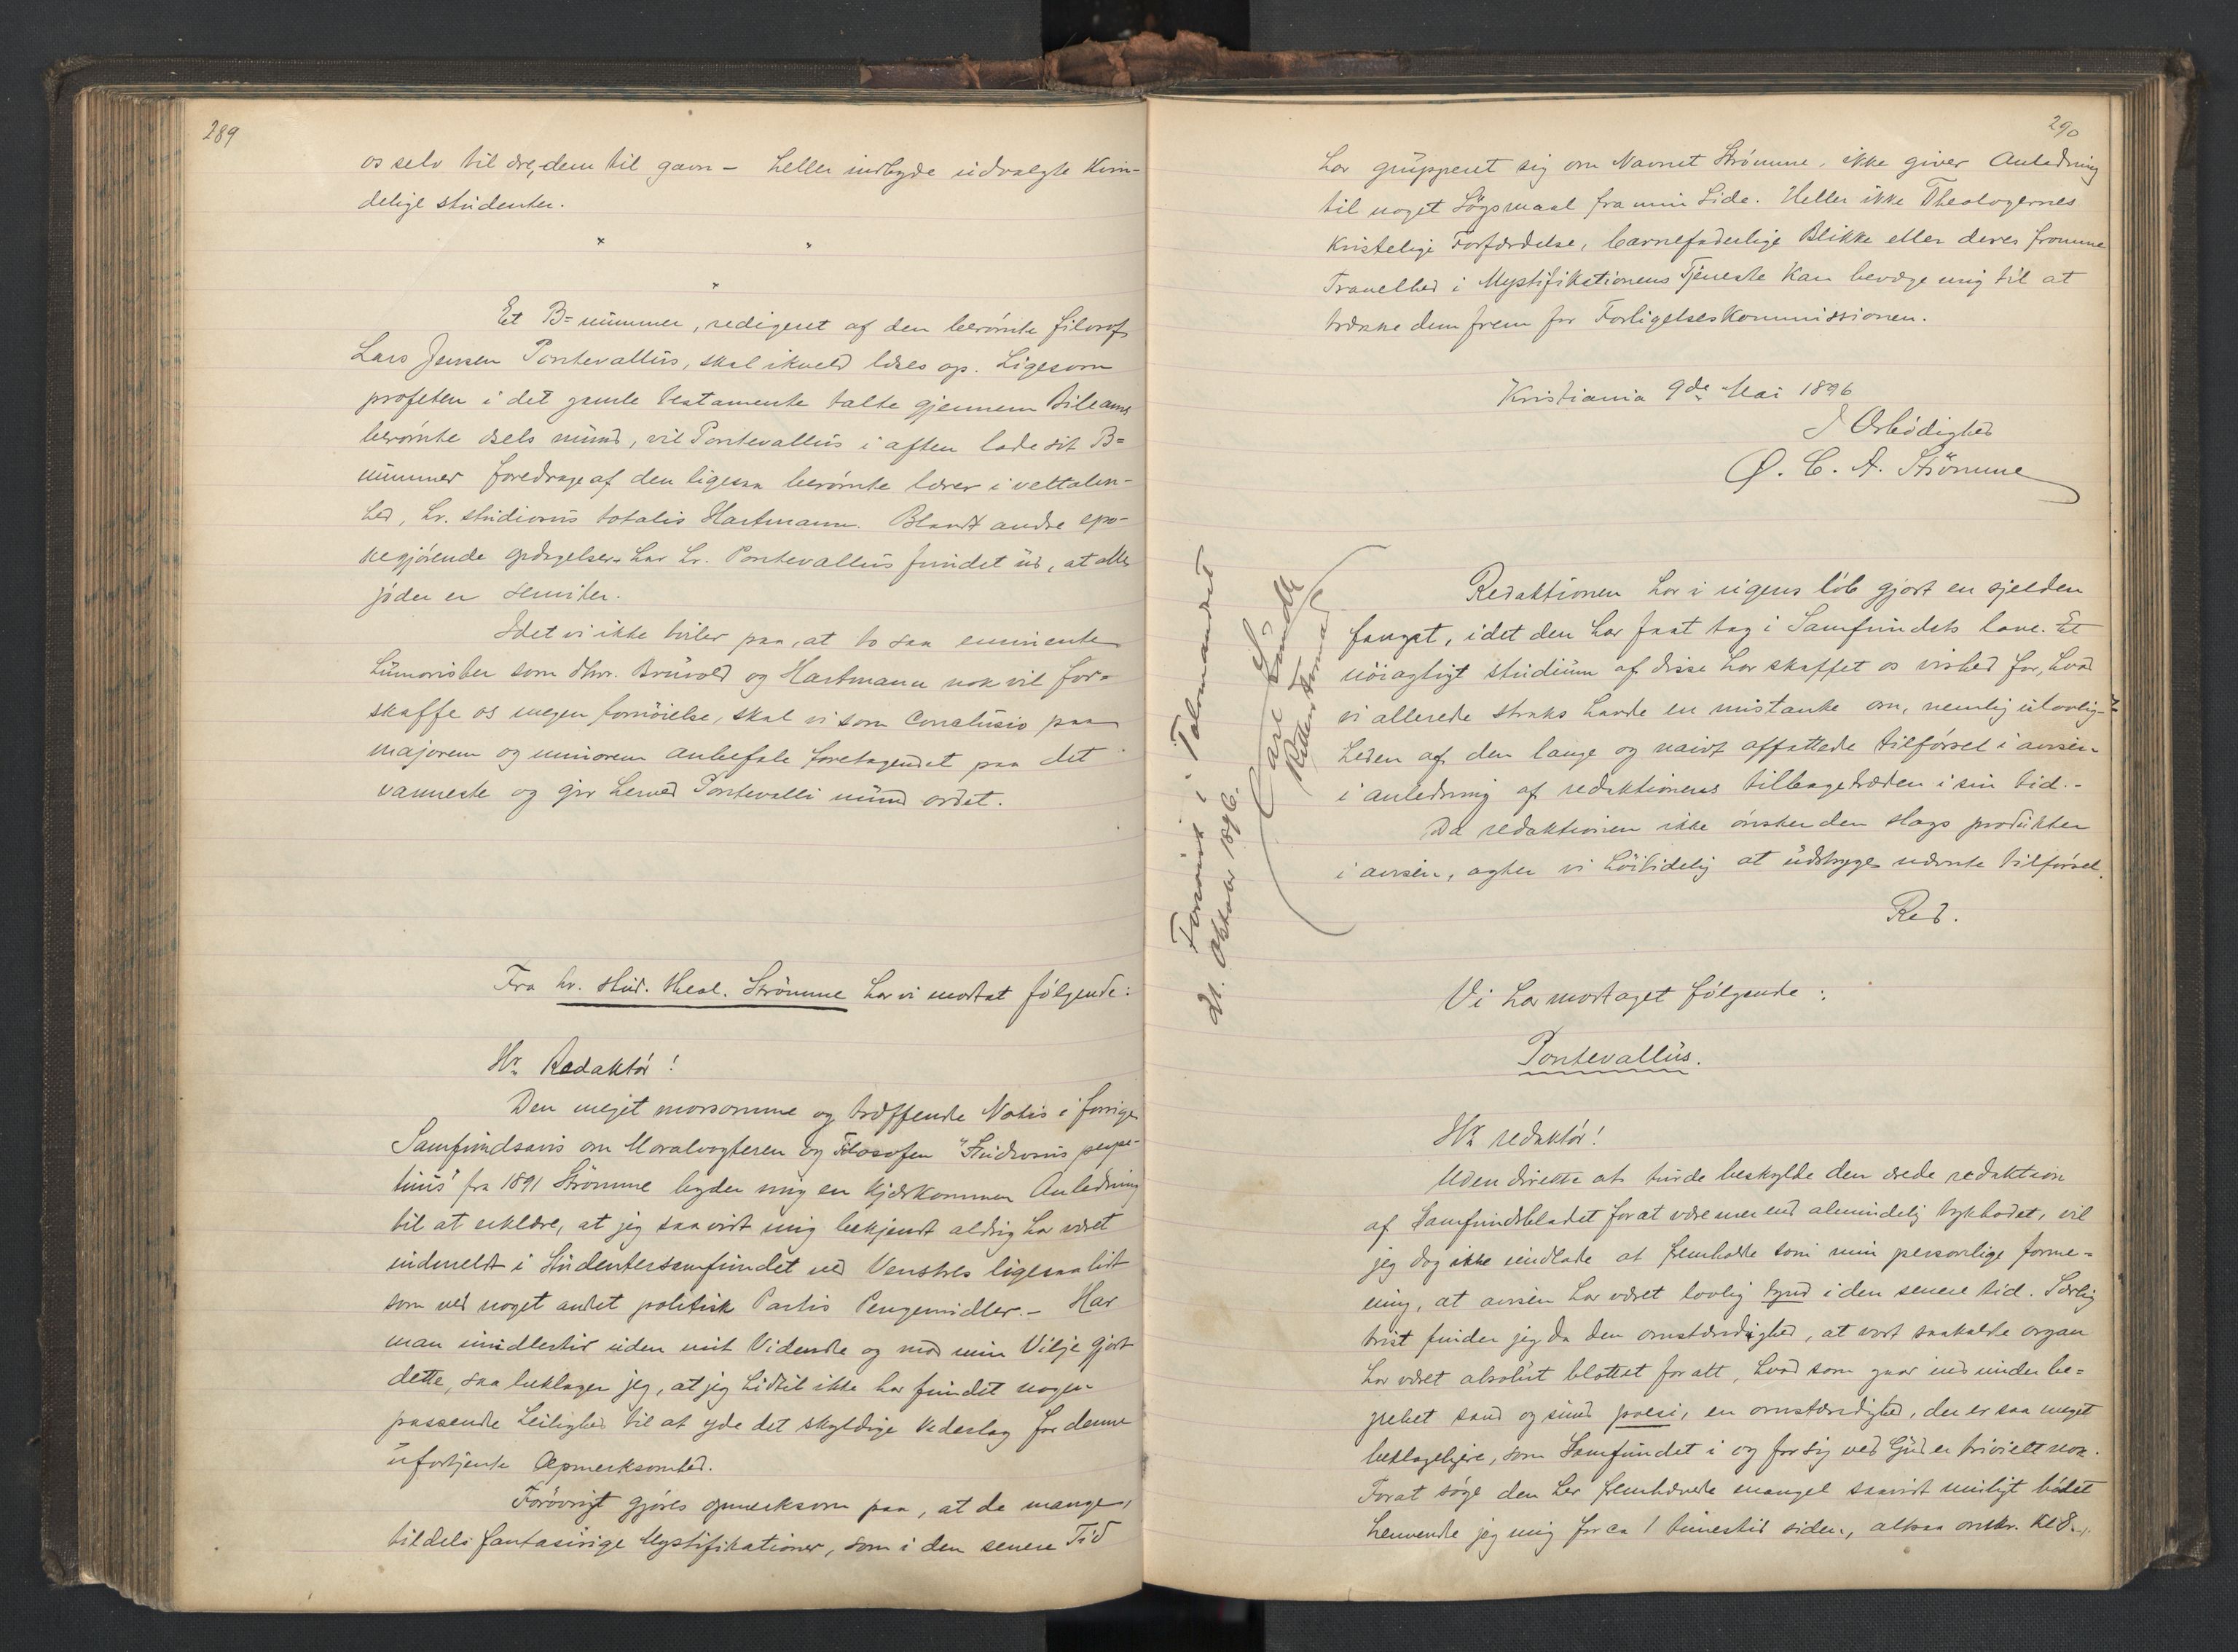 289
os selv til ære, dem til gavn – heller indbyde udvalgte kvin-
delige studenter.
Et B-nummer, redigeret af den berømte filosof
Lars Jensen Pontevallus, skal ikveld læses op. Ligesom
profeten i det gamle testamente talte gjennem Bileams
berømte æsels mund, vil Pontevallus i aften lade sit B-
nummer foredrage af den ligesaa berømte lærer i veltalen-
hed, hr. studiosus totalis Hartmann. Blandt andre epo-
kegjørende opdagelser har hr. Pontevallus fundet ud, at alle
jøder er semiter.
Idet vi ikke tviler paa, at to saa eminente
humorister som dhrr. Bruvold og Hartmann nok vil for-
skaffe os megen fornøielse, skal vi som conclusio paa
majorem og minorem anbefale foretagendet paa det
varmeste og gir herved Pontevalli mund ordet.
Fra hr. stud. theol. Strömme har vi modtat følgende:
Hr. Redaktør!
Den meget morsomme og træffende Notis i forrige
Samfundsavis om Moralvogteren og Filosofen "Studiosus perpe-
tuus" fra 1891 Strömme byder mig en kjærkommen Anledning
til at erklære, at jeg saavidt mig bekjendt aldrig har været
indmeldt i Studentersamfundet ved Venstres ligesaalidt
som ved noget andet politisk Partis Pengemidler. – Har
man imidlertid uden mit Vidende og mod min Vilje gjort
dette, saa beklager jeg, at jeg hidtil ikke har fundet nogen
passende Leilighed til at yde det skyldige Vederlag for denne
ufortjente Opmerksomhed.
Forøvrigt gjøres opmerksom paa, at de mange,
tildels fantasirige Mystifikationer, som i den senere Tid
290
har grupperet sig om Navnet Strömme, ikke giver Anledning
til noget Søgsmaal fra min Side. Heller ikke Theologernes
kristelige Forfærdelse, barnefaderlige Blikke eller deres fromme
Travelhed i Mystifikationens Tjeneste kan bevæge mig til at
trække dem frem for Forligelseskommissionen.
Kristiania 9de Mai 1896
I Ærbödighed
O. C. A. Strömme
Redaktionen har i ugens løb gjort en sjelden
fangst, idet den har faat tag i Samfundets love. Et
nöiagtigt studium af disse har skaffet os vished for, hvad
vi allerede straks havde en mistanke om, nemlig ulovlig-
heden af den lange og naivt affattede tilførsel i avisen
i anledning af redaktionens tilbagetræden i sin tid. –
Da redaktionen ikke ønsker den slags produkter
i avisen, agter vi höitidelig at udstryge nævnte tilførsel.
Red.
21. Oktober 1896.
Carl
Vi har modtaget følgende:
Pontevallus.
Hr. redaktør!
Uden direkte at turde beskylde den ærede redaktion
af Samfundsbladet for at være mer end almindelig tykhodet, vil
jeg dog ikke undlade at fremholde som min personlige forme-
ning, at avisen har været lovlig tynd i den senere tid. Særlig
trist finder jeg da den omstændighed, at vort saakaldte organ
har været absolut blottet for alt, hvad som gaar ind under be-
grebet sand og sund poesi, en omstændighed, der er saa meget
beklageligere, som Samfundet i og for sig ved Gud er trivielt nok.
For at søge den her fremhævede mangel saavidt muligt bødet
henvendte jeg mig for ca 1 timestid siden, altsaa omkr. kl 8